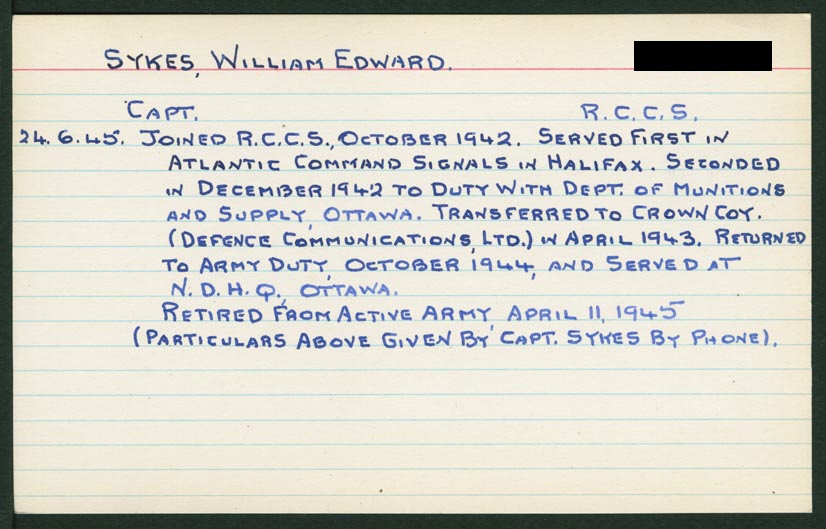 SYKES, WILLIAM EDWARD.
CAPT. R.C.C.S.
24.6.45. JOINED R.C.C.S., OCTOBER 1942. SERVED FIRST IN
ATLANTIC COMMAND SIGNALS IN HALIFAX. SECONDED
IN DECEMBER 1942 TO DUTY WITH DEPT. OF MUNITIONS
AND SUPPLY, OTTAWA. TRANSFERRED TO CROWN COY.
(DEFENCE COMMUNICATIONS, LTD.) IN APRIL 1943. RETURNED
TO ARMY DUTY, OCTOBER 1944, AND SERVED AT
N.D.H.Q., OTTAWA.
RETIRED FROM ACTIVE ARMY, APRIL 11, 1945
(PARTICULARS ABOVE GIVEN BY CAPT. SYKES BY PHONE).